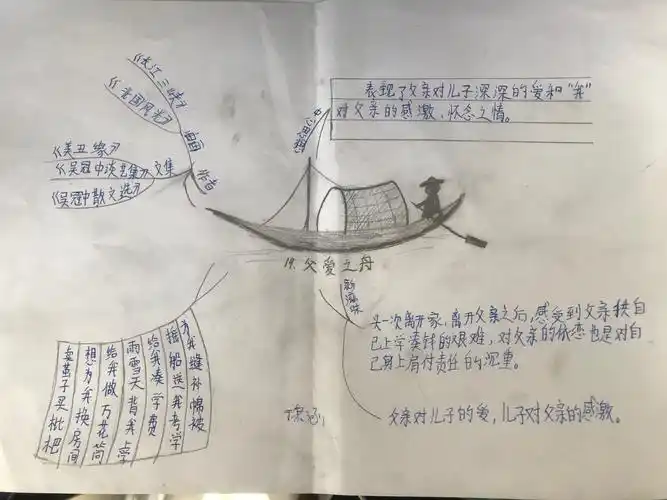 《长江三峡》
《祖国风光》
油画
《美丑缘》
《吴冠中谈艺集》文集
《吴冠中散文选》
作者
中心思想
表现了父亲对儿子深深的爱和"我"
对父亲的感激、怀念之情。
19.父爱之舟
新滋味
头一次离开家,离开父亲之后,感受到父亲供自
己上学凑钱的艰难,对父亲的依恋也是对自
己身上肩付责任的沉重。
父亲对儿子的爱,儿子对父亲的感激。
卖茧子买枇杷
想为我换房间
给我做万花筒
雨雪天背我上学
给我凑学费
摇船送我考学
为我缝补棉被